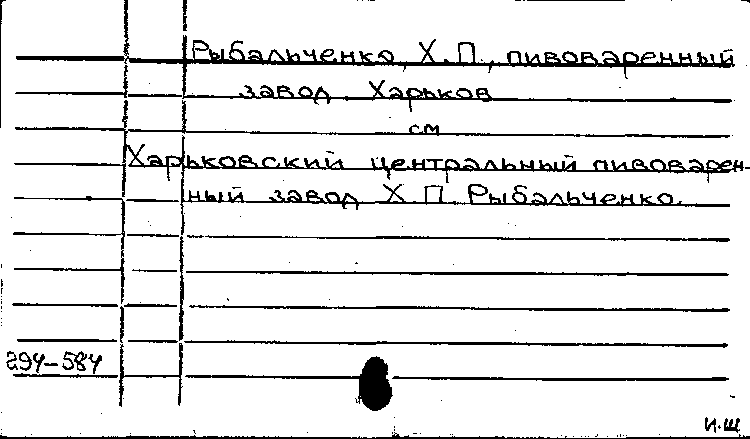 Рыбальченко, Х.П., пивоваренный
завод. Харьков
см
Харьковский центральный пивоварен-
ный завод Х.П. Рыбальченко.
294-584
И.Ш